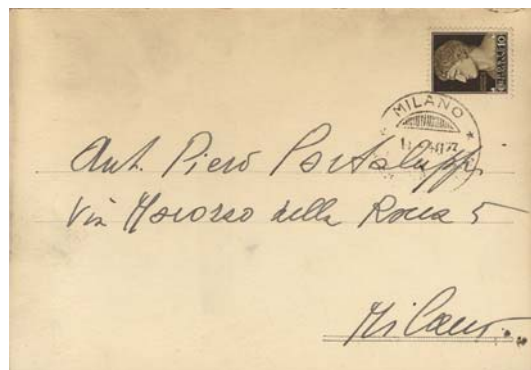 MILANO
Arch. Piero Portaluppi
Via Morozzo della Rocca 5
Milano